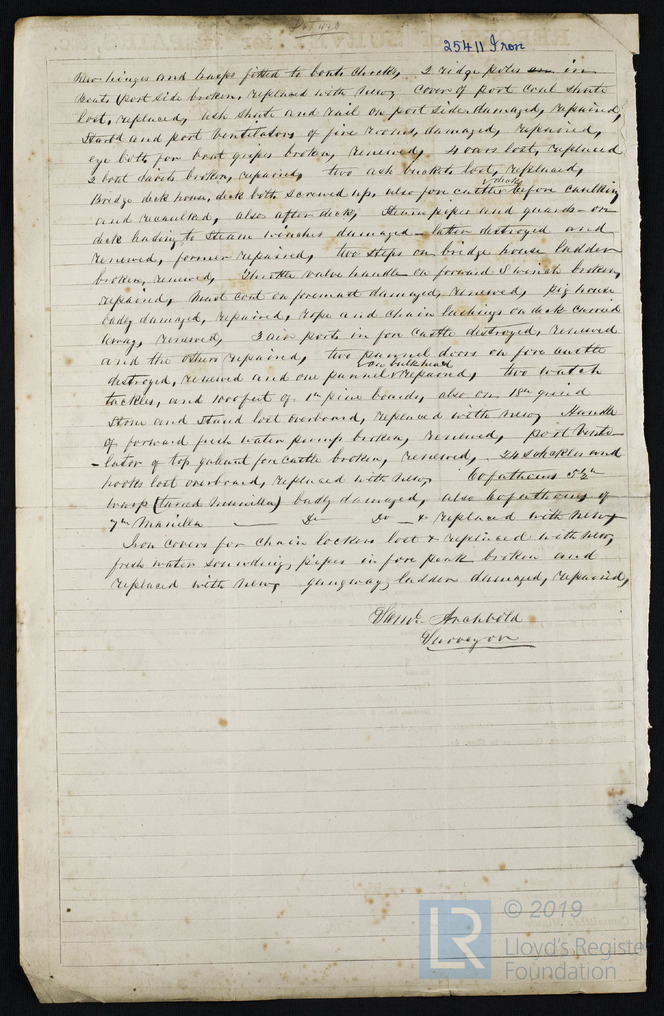 25411 Iron
New hinges and hasps fitted to boats chocks, 2 ridge poles in
boats (port side broken, replaced with new, cover of port coal shute
lost, replaced, ash shute and rail on port side damaged, repaired,
Starbd and port ventilators of fire rooms, damaged, repaired,
eye bolts for boat gripes broken, renewed, 4 oars lost, replaced
2 boat davits broken, repaired, two ash buckets lost, replaced,
Bridge deck house, deck bolts screwed up, also fore deck before caulking
and recaulked, also after deck, Steam pipes and guards on
deck leading to steam winches damaged – latter destroyed and
renewed, former repaired, two steps on bridge house ladder
broken, renewed, Throttle valve handle on forward S winch broken,
repaired, Mast coat on foremast damaged, renewed, pig house
badly damaged, repaired, rope and chain lashings on deck carried
away, renewed, 2 air ports in fore castle destroyed, renewed
and the others repaired, two pannel doors on fore castle
destroyed, renewed and one pannel on bulkhead repaired, two watch
tackles, and 1000 feet of 1in pine boards, also on 18in grind
Stone and Stand lost overboard, replaced with new, Handle
of forward fresh water pump broken, renewed, port venti-
-lator of top galeant forecastle broken, renewed, 24 Schackles and
hooks lost overboard, replaced with new, 60 fathoms 5½in
warp (tarred Manilla) badly damaged, also 60 fathoms of
7in Manilla — Do Do — & replaced with new,
Iron covers for chain lockers lost & replaced with new,
fresh water sounding pipes in fore peak broken and
replaced with new, gangway ladder damaged, repaired,
Saml. Archbold
Surveyor
LR © 2019
Lloyd's Register
Foundation